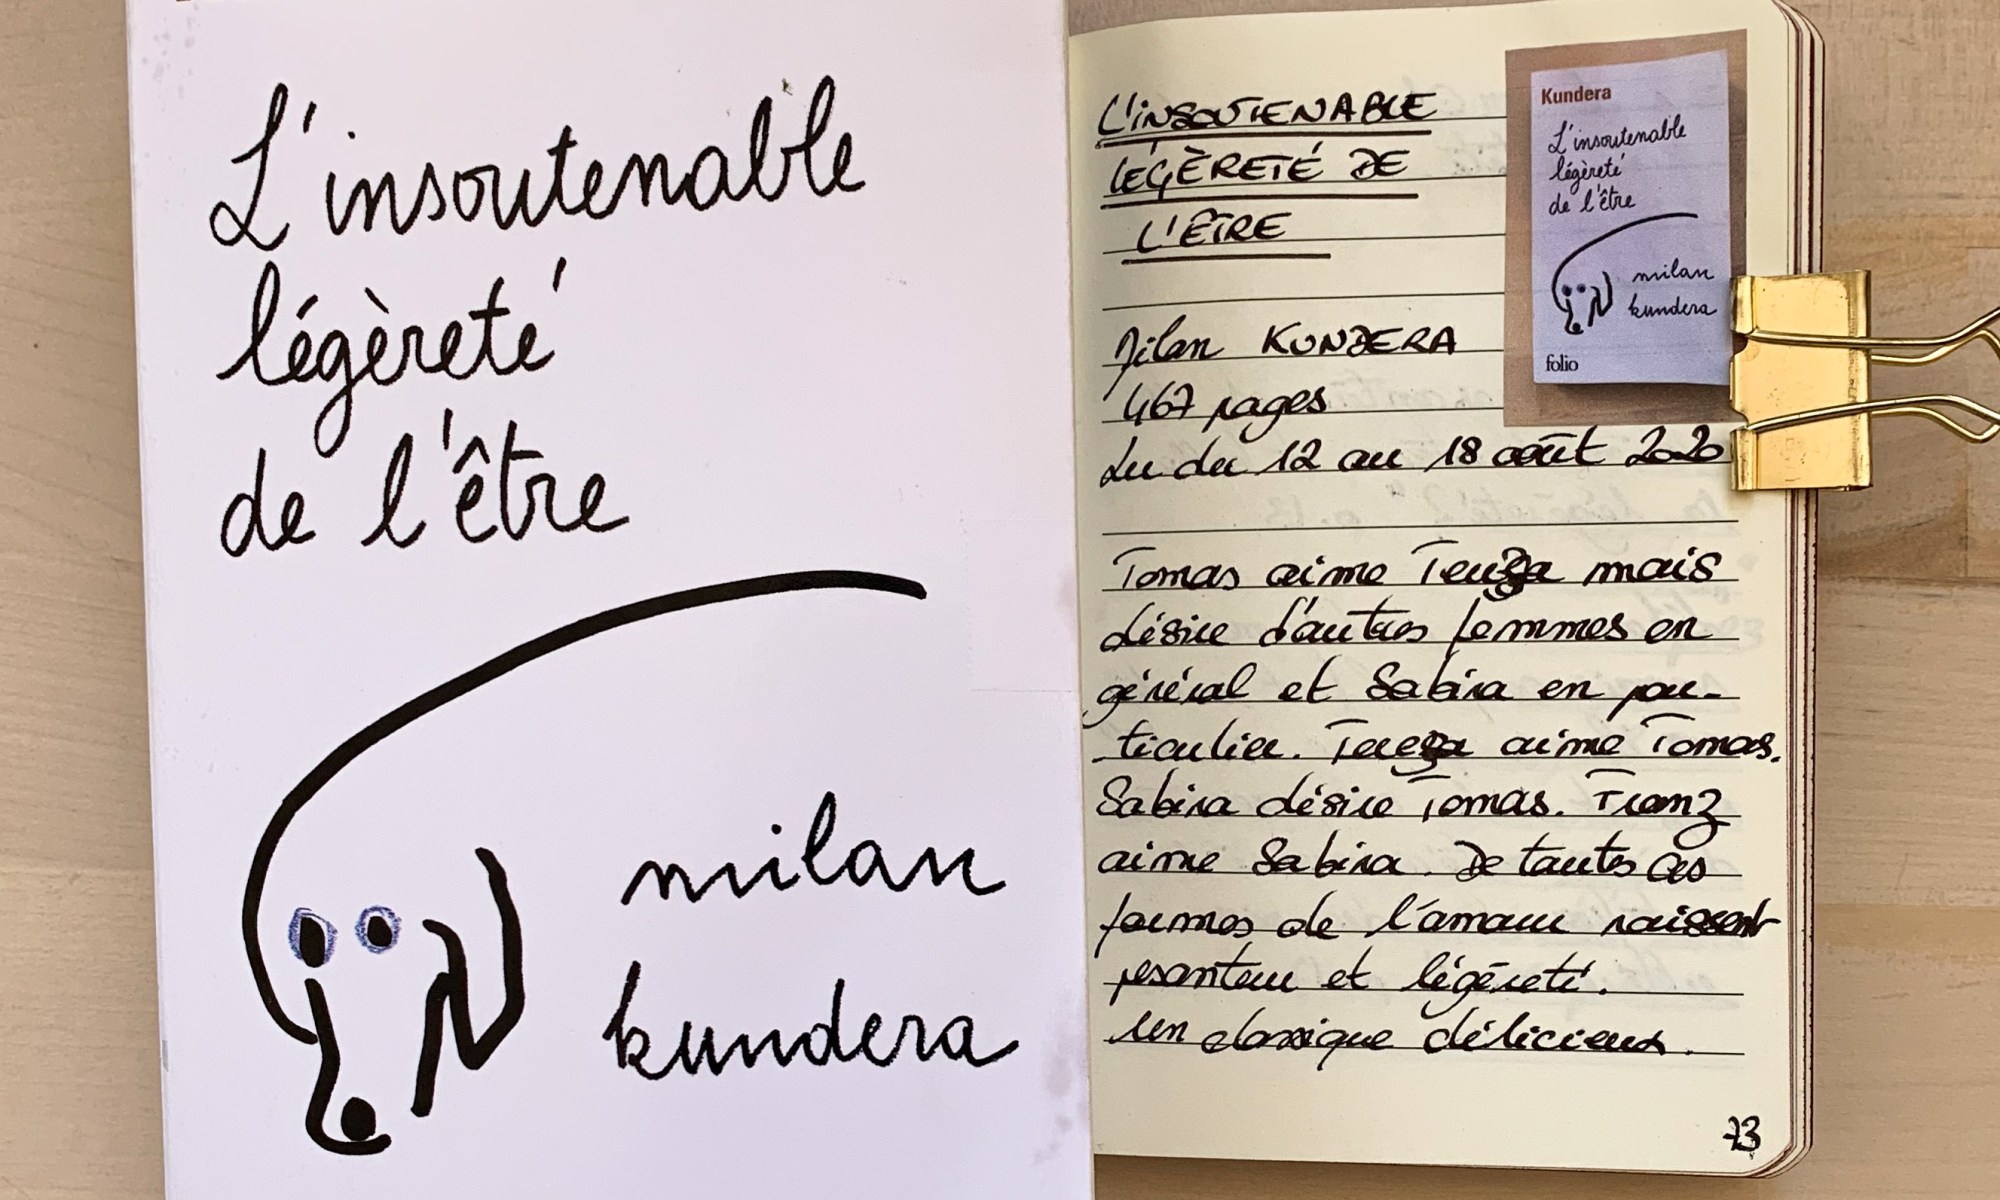 L'insoutenable
légèreté
de l'être
milan
kundera
L'INSOUTENABLE
LÉGÈRETÉ DE
L'ÊTRE
Milan KUNDERA
467 pages
Lu du 12 au 18 août 2020
Tomas aime Tereza mais
désire d'autres femmes en
général et Sabina en par-
ticulier. Tereza aime Tomas.
Sabina désire Tomas. Franz
aime Sabina. De toutes ces
formes de l'amour naissent
pesanteur et légèreté.
Un classique délicieux.
73
Kundera
L'insoutenable
légèreté
de l'être
milan
kundera
folio